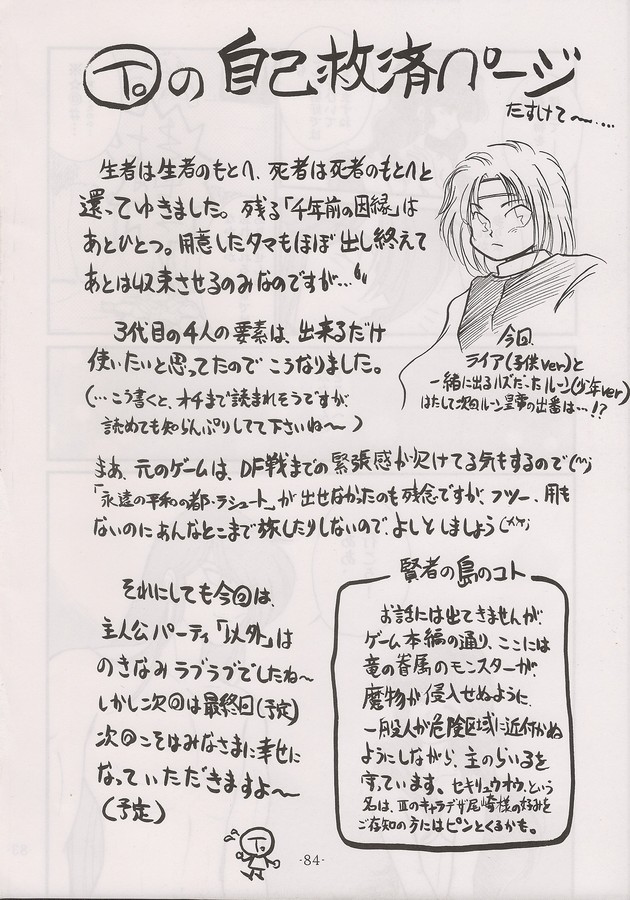 To。の 自己救済ページ
たすけて〜‥‥
生者は生者のもとへ、死者は死者のもとへと
還ってゆきました。残る「千年前の因縁」は
あとひとつ。用意したタマもほぼ出し終えて
あとは収束させるのみなのですが…
3代目の4人の要素は、出来るだけ
使いたいと思ってたのでこうなりました。
(…こう書くと、オチまで読まれそうですが、
読めても知らんぷりしてて下さいね〜)
今回、
ライア(子供ver)と
一緒に出るハズだったルーン(少年ver)
はたして次回ルーン皇帝の出番は…!?
まあ、元のゲームは、DF戦までの緊張感が欠けてる気もするので(^^;)
「永遠の平和の都・ラシュート」が出せなかったのも残念ですが、フツー、用も
ないのにあんなとこまで旅したりしないので、よしとしましょう(^^;)
それにしても今回は、
主人公パーティ「以外」は
のきなみラブラブでしたね〜
しかし次回は最終回(予定)
次回こそはみなさまに幸せに
なっていただきますよ〜
(予定)
賢者の島のコト
お話には出てきませんが、
ゲーム本編の通り、ここには
竜の眷属のモンスターが、
魔物が侵入せぬように、
一般人が危険区域に近付かぬ
ようにしながら、主のらいるを
守っています。セキリュウオウ、という
名は、Ⅲのキャラデザ尾崎様の好みを
ご存知の方にはピンとくるかも。
To。
-84-